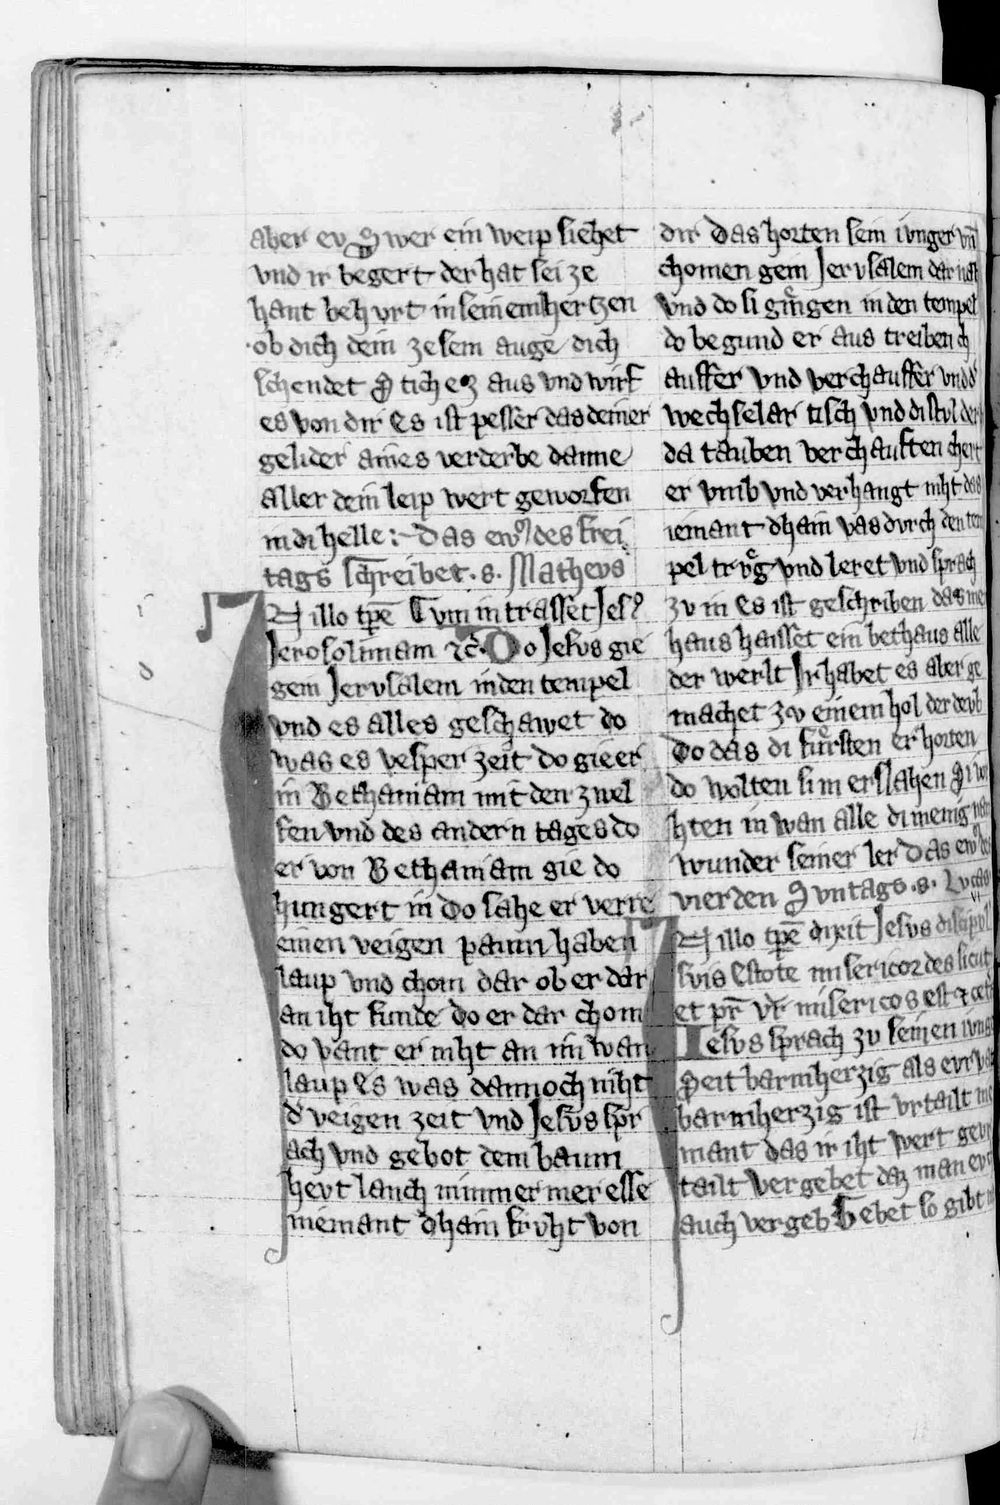 aber ev S wer ein weip siehet
vnd ir begert der hat sei ze
hant behvrt in seinem hertzen
ob dich dein zesem auge dich
schendet so tich ez aus vnd wirf
es von dir Es ist pesser das deiner
gelider aines verderbe danne
aller dein leip wert geworfen
in di helle : Das ewꝰ des frei
tags schreibet . s . Matheus
IN illo tp̄e Cum intrasset Jesꝰ
Jerosolimam ⁊c̄ . Do Jesus gie
gem Jerusalem in den tempel
vnd es alles geschawet do
was es vesper zeit do gie er
in Bethaniam mit den zwel
fen vnd des andern tages do
er von Bethaniam gie do
hungert in Do sahe er verre
einen veigen paum haben
laup vnd chom dar ob er dar
an iht funde Do er dar chom
do vant er niht an im wan
laup Es was dannoch niht
d' veigen zeit vnd Jesus spr
ach vnd gebot dem baum
hevt lanch nimmer mer esse
niemant dhain frvht von
dir Das horten sein ivnger vn̄
chomen gein Jerusalem dar nach
vnd do si giengen in den tempel
do begund er aus treiben ch
auffer vnd verchauffer vnd d'
wechselar tisch vnd di stvl der
da tauben verchauften chert
er vmb vnd verhangt niht das
iemant dhain vas dvrch den tem
pel trvg vnd leret vnd sprach
zv in Es ist geschriben das mei
haus haisset ein bethaus alle
der werlt Ir habet es aber ge
machet zv einem hol der deub
Do das di fursten erhorten
do wolten si in erslahen Si
hten in wan alle di menig
wunder seiner ler Das ewꝰ des
vierden Suntags . s . Lucas
IN illo tp̄e dixit Jesus discipul
suis Estote misericordes sicut
et pr̄ vr̄ misericos est ⁊ cet
Jesus sprach zv seinen iung
Seit barmherzig als evr vat
barmherzig ist vrtailt
mant das ir iht wert gevr
tailt vergebet daz man ev
auch vergeb Gebet so gibt